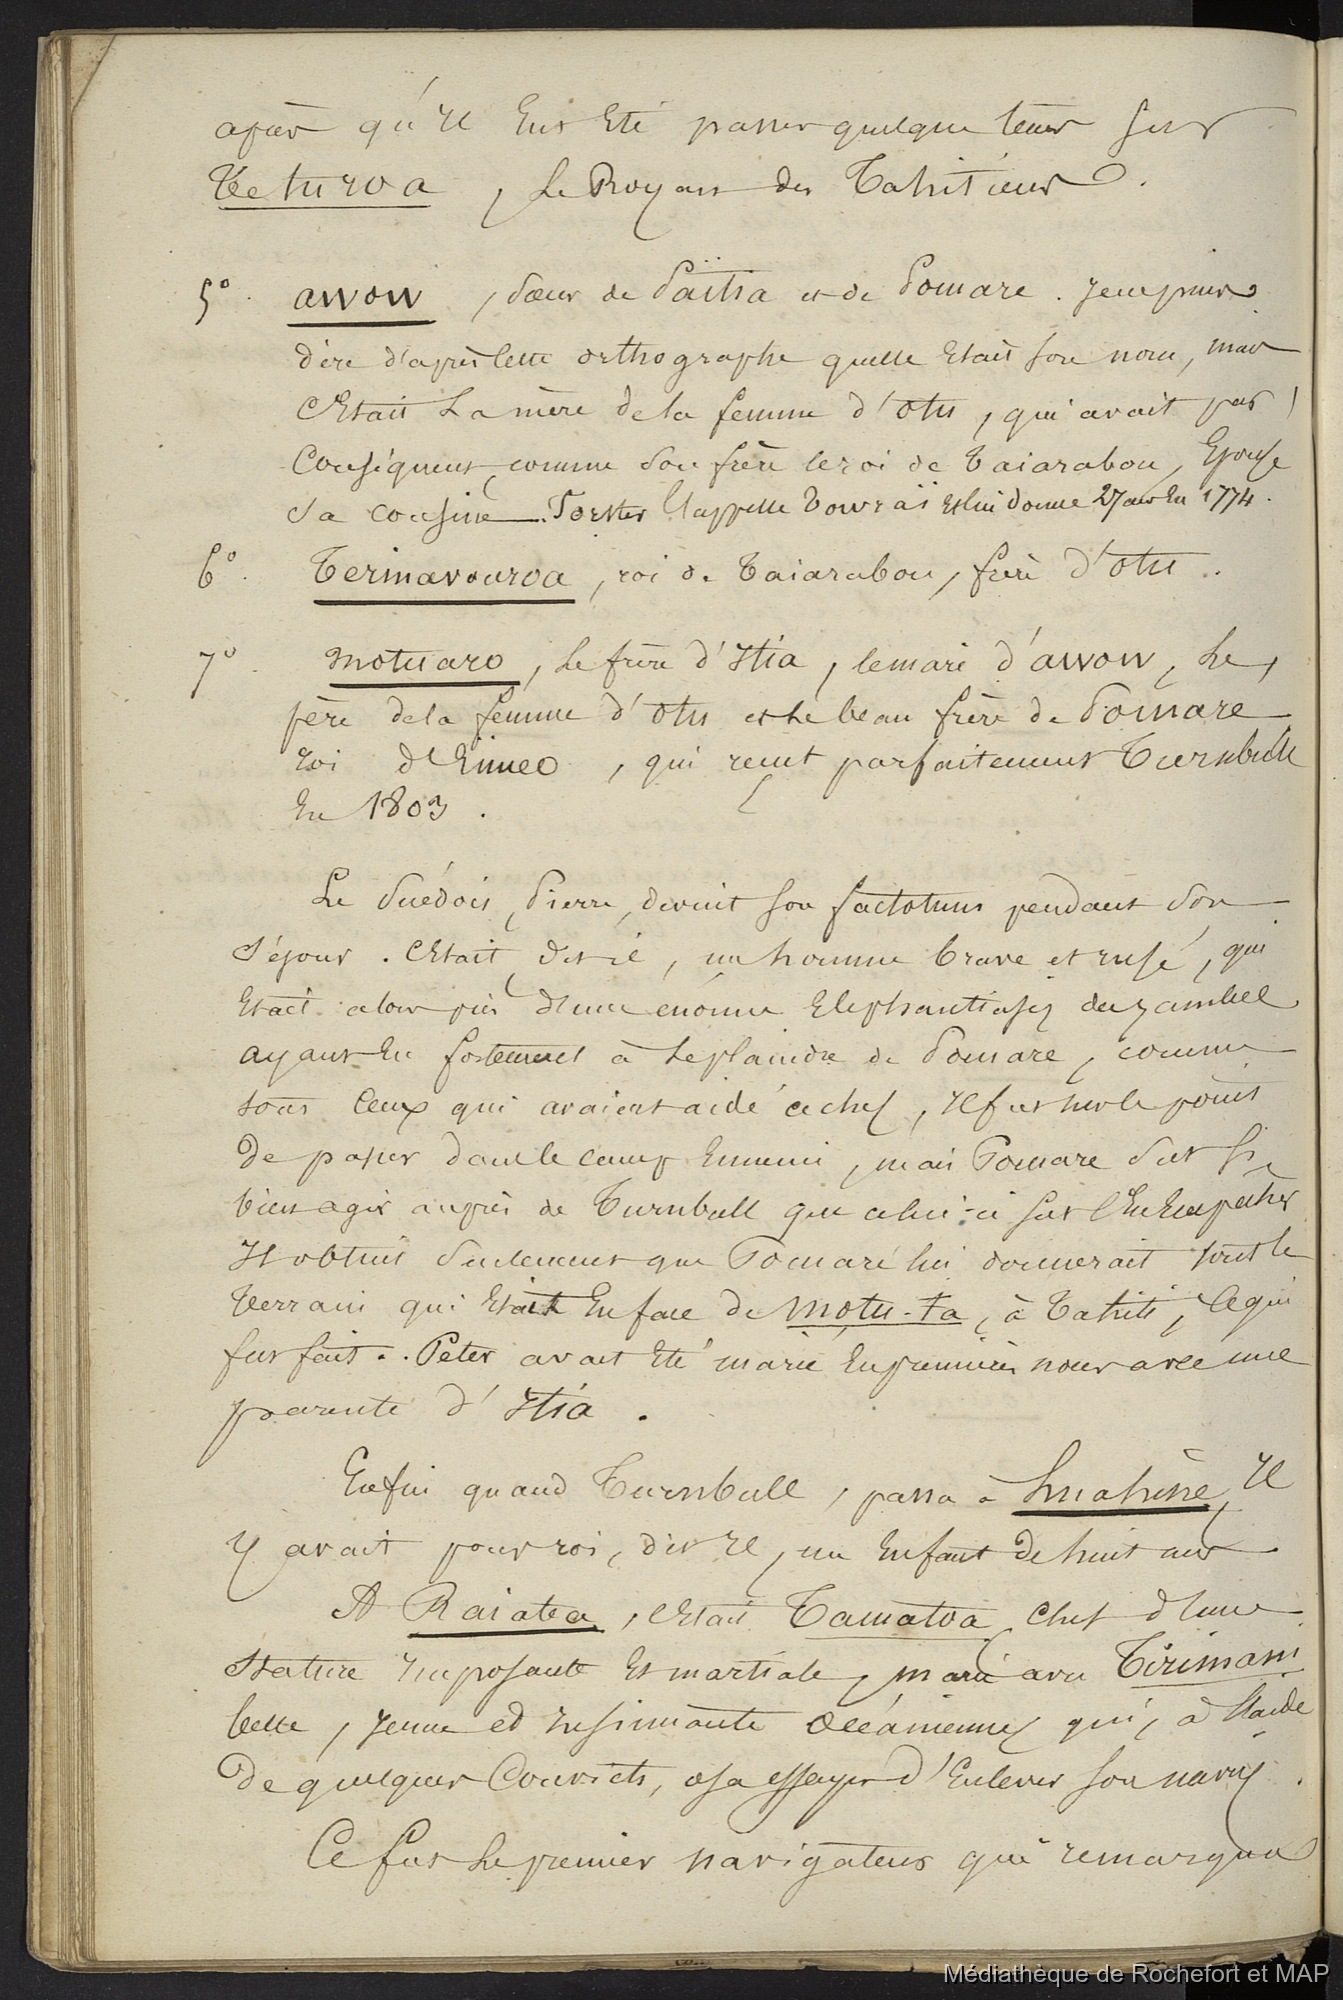 après qu'il eut été passer quelque tems sur
Teturoa, le Royan des Tahitiens.
5° awow, sœur de Païtia et de Pomare. Je ne puis
dire d'après cette orthographe quelle était son nom, mais
c'était la mère de la femme d'Otu, qui avait par
conséquent, comme son frère le roi de Taiarabou, épousé
sa cousine. Forster l'appelle Towraï et lui donne 27 ans en 1774.
6° Terinavouroa, roi de Taiarabou, frère d'Otu.
7° Motuaro, le frère d'Itia, le mari d'awow, le
père de la femme d'Otu et le beau frère de Pomare
roi d'Eimeo, qui reçut parfaitement Turnbull
en 1803.
Le Suédois, Pierre, devint son factotum pendant son
séjour. C'était, dit-il, un homme brave et rusé, qui
était alors pris d'une énorme Elephantiasis des jambes
ayant eu fortement à se plaindre de Pomare, comme
tous ceux qui avaient aidé ce chef, il fut sur le point
de passer dans le camp ennemi, mais Pomare sut si
bien agir auprès de Turnbull que celui-ci sut l'en empêcher
Il obtint seulement que Pomaré lui donnerait tout le
terrain qui était en face de motu-ta, à Tahiti, ce qui
fut fait. Peter avait été marié en premières noces avec une
parente d'Itia.
Enfin quand Turnbull, passa à huahine, il
y avait pour roi, dit-il, un enfant de huit ans
A Raiatea, c'était Tamatoa chef d'une
stature imposante et martiale, marié avec Tirimani
belle, jeune et insinuante océanienne, qui, à l'aide
de quelques Convicts, osa essayer d'enlever son navire.
Ce fut le premier navigateur qui remarqua
Médiathèque de Rochefort et MAP